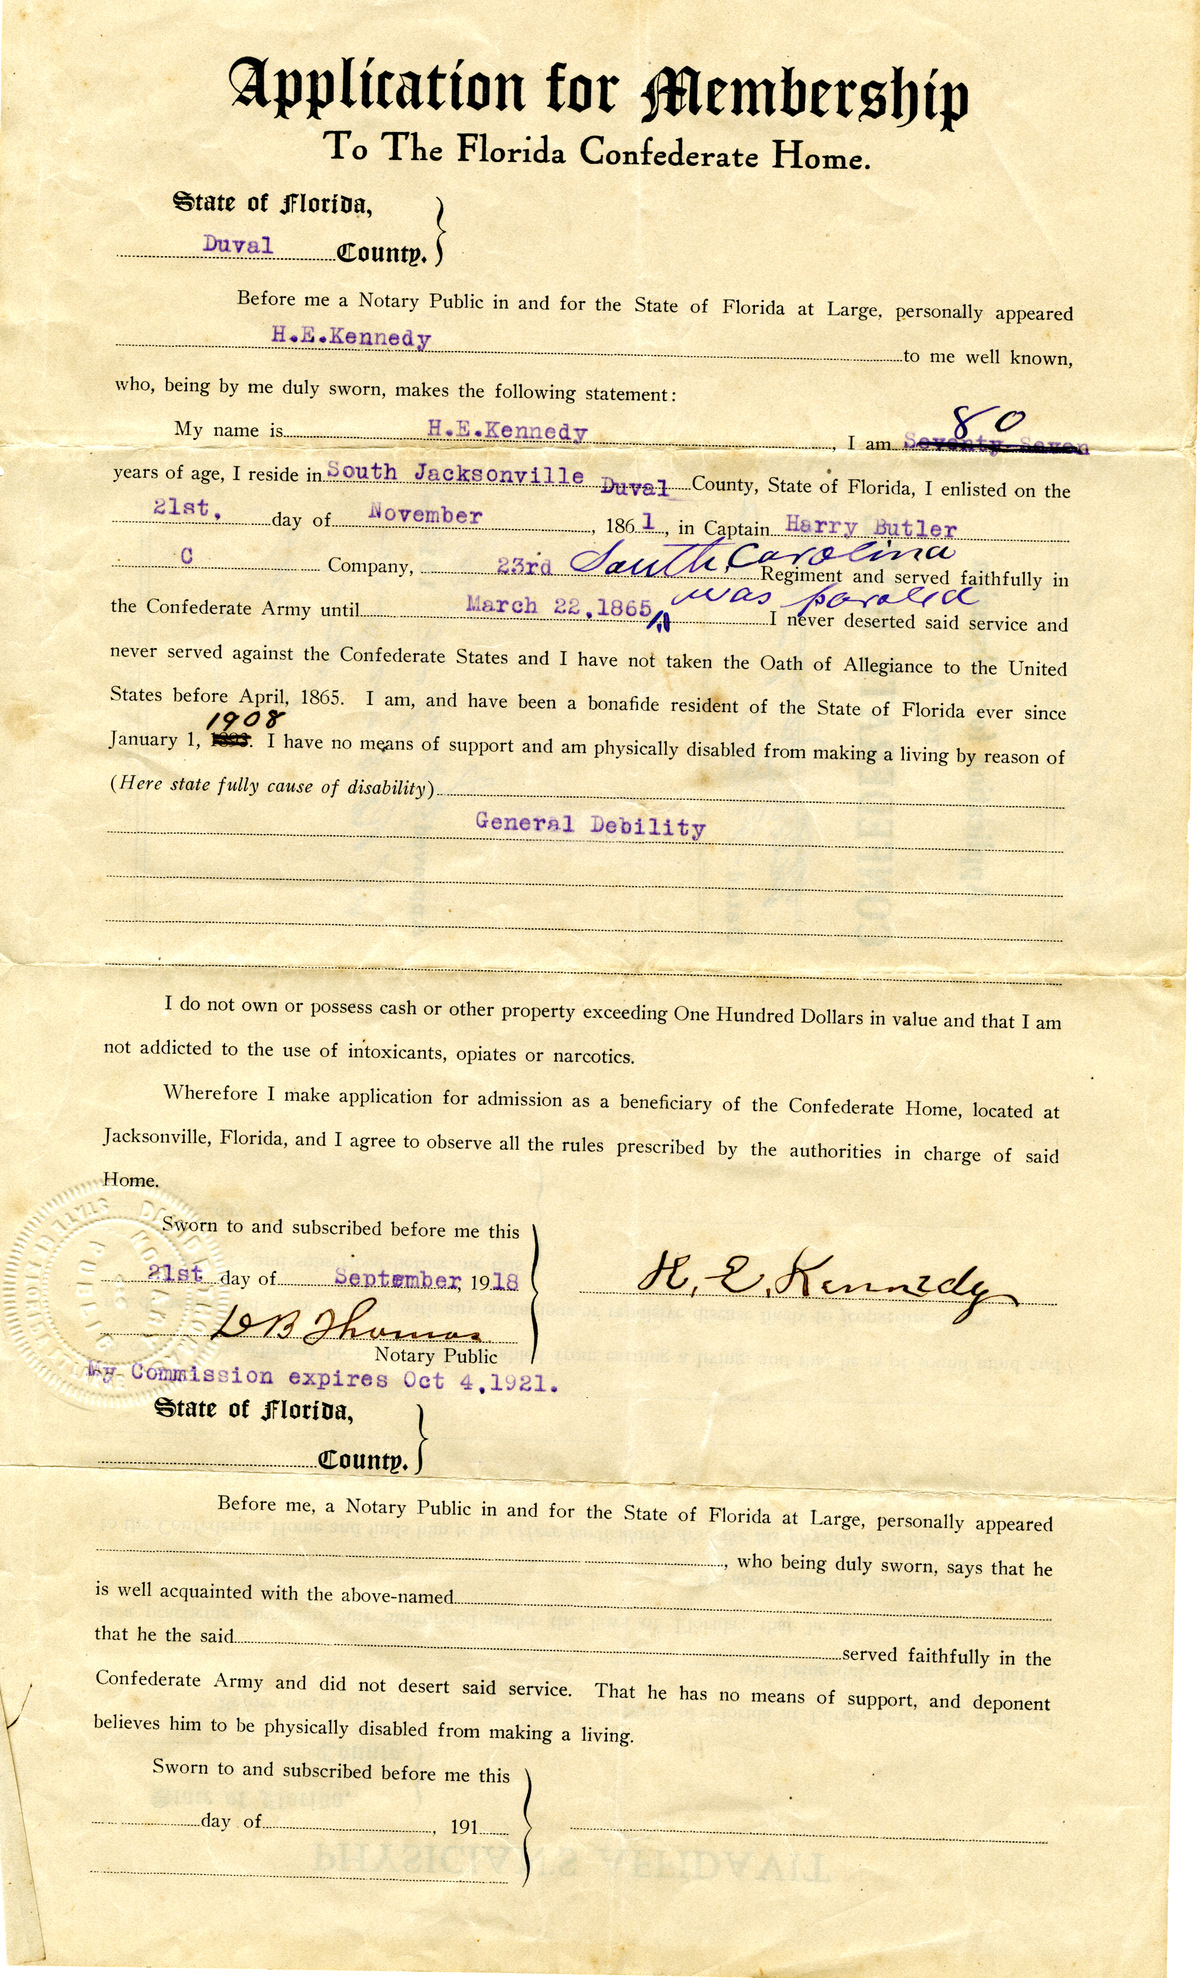 Application for Membership
To The Florida Confederate Home.
State of Florida,
Duval County.
Before me a Notary Public in and for the State of Florida at Large, personally appeared
H.E.Kennedy to me well known,
who, being by me duly sworn, makes the following statement:
80
My name is H.E.Kennedy, I am Seventy Seven
years of age, I reside in South Jacksonville Duval County, State of Florida, I enlisted on the
21st. day of November, 1861, in Captain Harry Butler
C Company, 23rd South Carolina Regiment and served faithfully in
was paroled
the Confederate Army until March 22,1865, I never deserted said service and
never served against the Confederate States and I have not taken the Oath of Allegiance to the United
States before April, 1865. I am, and have been a bonafide resident of the State of Florida ever since
1908
January 1, 1893. I have no means of support and am physically disabled from making a living by reason of
(Here state fully cause of disability)
General Debility
I do not own or possess cash or other property exceeding One Hundred Dollars in value and that I am
not addicted to the use of intoxicants, opiates or narcotics.
Wherefore I make application for admission as a beneficiary of the Confederate Home, located at
Jacksonville, Florida, and I agree to observe all the rules prescribed by the authorities in charge of said
Home.
Sworn to and subscribed before me this
21st day of September, 1918
H. E. Kennedy
D B Thomas
Notary Public
My Commission expires Oct 4,1921.
State of Florida,
County.
Before me, a Notary Public in and for the State of Florida at Large, personally appeared
, who being duly sworn, says that he
is well acquainted with the above-named
that he the said served faithfully in the
Confederate Army and did not desert said service. That he has no means of support, and deponent
believes him to be physically disabled from making a living.
Sworn to and subscribed before me this
day of , 191